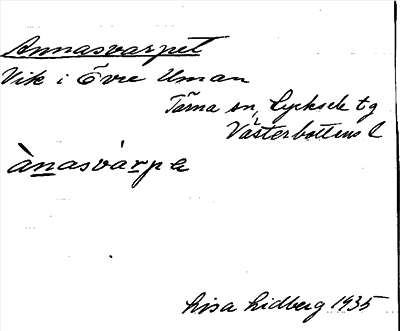 Annasvarpet
Vik i Övre Uman
Tärna sn, Lycksele tg
Västerbottens l
ànasvárpe
Lisa Lidberg 1935